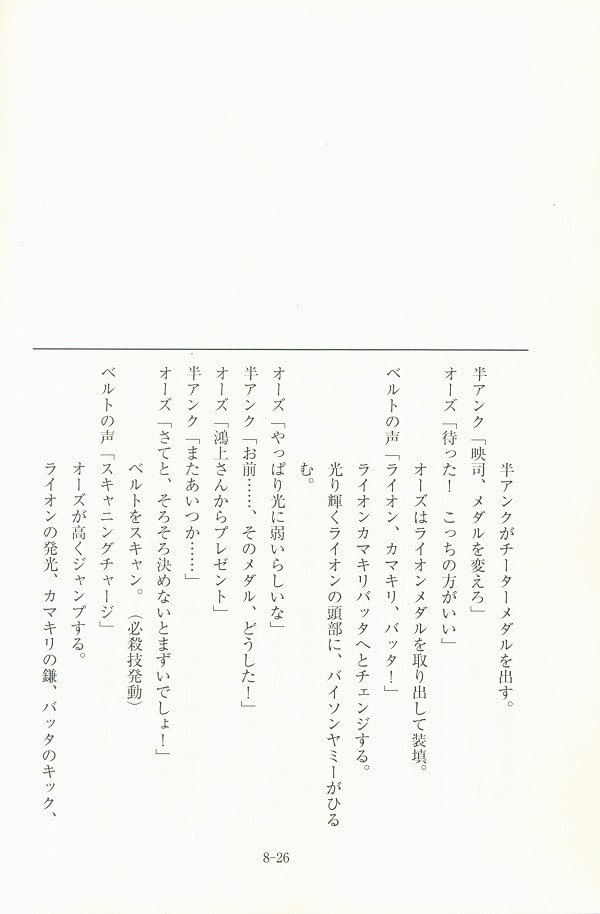 半アンクがチーターメダルを出す。
半アンク「映司、メダルを変えろ」
オーズ「待った！　こっちの方がいい」
オーズはライオンメダルを取り出して装填。
ベルトの声「ライオン、カマキリ、バッタ！」
ライオンカマキリバッタへとチェンジする。
光り輝くライオンの頭部に、バイソンヤミーがひる
む。
オーズ「やっぱり光に弱いらしいな」
半アンク「お前……、そのメダル、どうした！」
オーズ「鴻上さんからプレゼント」
半アンク「またあいつか……」
オーズ「さてと、そろそろ決めないとまずいでしょ！」
ベルトをスキャン。（必殺技発動）
ベルトの声「スキャニングチャージ」
オーズが高くジャンプする。
ライオンの発光、カマキリの鎌、バッタのキック、
8-26